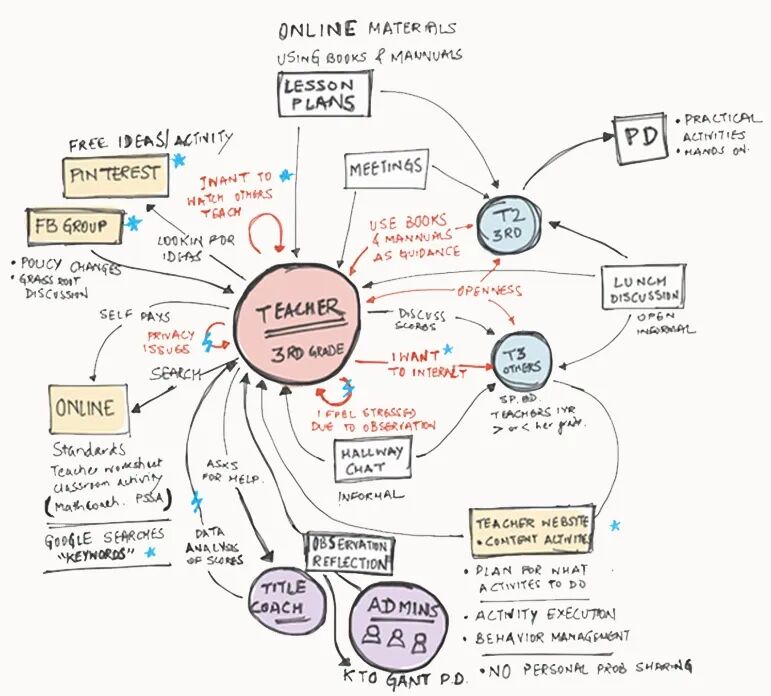 ONLINE MATERIALS
USING BOOKS & MANNUALS
LESSON
PLANS
PD
• PRACTICAL
ACTIVITIES
• HANDS ON
FREE IDEAS/ACTIVITY
PINTEREST
MEETINGS
I WANT TO
WATCH OTHERS
TEACH
FB GROUP
T2
3RD
USE BOOKS
& MANNUALS
AS GUIDANCE
LOOKIN FOR
IDEAS
• POLICY CHANGES
• GRASS ROOT
DISCUSSION
LUNCH
DISCUSSION
OPEN
INFORMAL
OPENNESS
TEACHER
3RD GRADE
SELF PAYS
PRIVACY
ISSUES
DISCUSS
SCORES
I WANT
TO INTERACT
T3
OTHERS
SP. ED.
TEACHERS 1YR
> or < her grade.
SEARCH
ONLINE
I FEEL STRESSED
DUE TO OBSERVATION
Standards
Teacher worksheet
classroom activity
(MathCoach. PSSA)
HALLWAY
CHAT
INFORMAL
ASKS
FOR HELP.
GOOGLE SEARCHES
"KEYWORDS"
DATA
ANALYSIS
OF SCORES
OBSERVATION
REFLECTION
TEACHER WEBSITE
• CONTENT ACTIVITES
• PLAN FOR WHAT
ACTIVITES TO DO
• ACTIVITY EXECUTION
• BEHAVIOR MANAGEMENT
• NO PERSONAL PROB SHARING
TITLE
COACH
ADMINS
K TO GANT P.D.